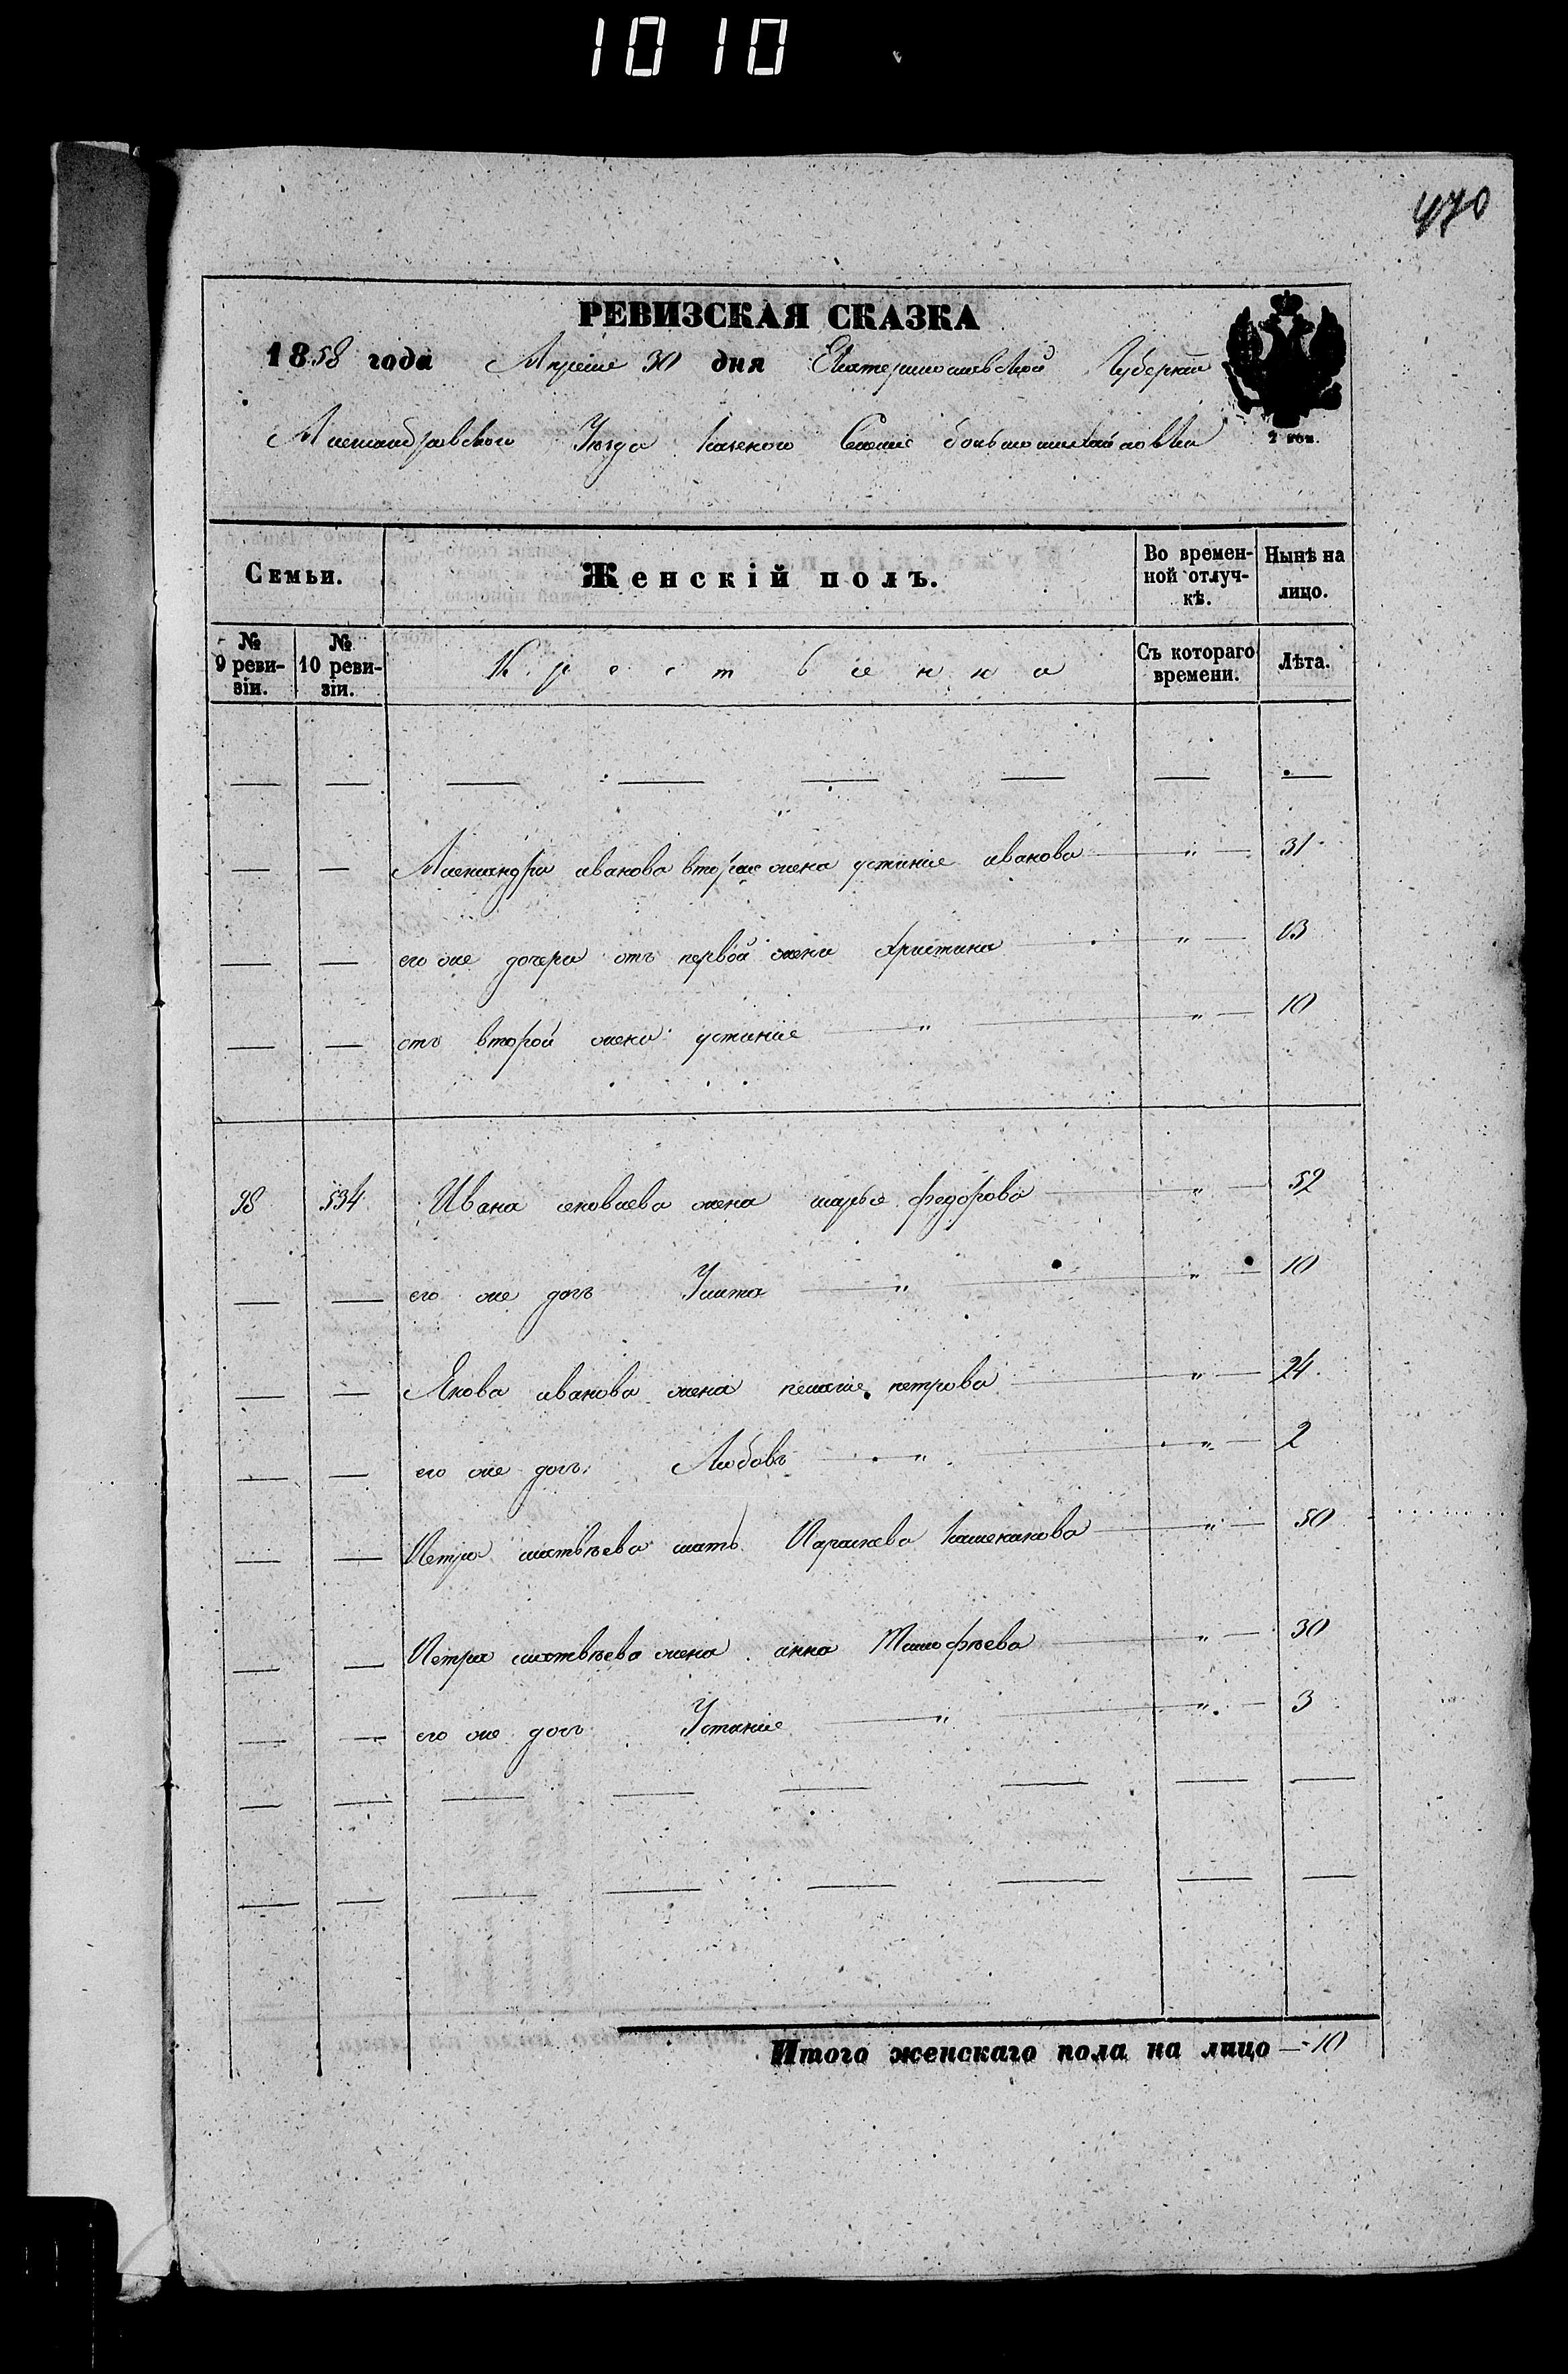 1010
470
РЕВИЗСКАЯ СКАЗКА
1858 года Апреля 30 дня Екатеринославской Губернии
Александровского Уезда Села большемихайловки
2 коп.
Семьи. Женскій полъ. Во времен-ной отлуч-кѣ. Нынѣ на лицо.
№ 9 реви-зіи. № 10 реви-зіи. Съ котораго времени. Лѣта.
— — — — — — — —
— — Александра иванова вторая жена устинія иванова — „ — 31
— — его же дочери отъ первой жени христина „ — 13
— — отъ второй жени устинія — „ — „ — 10
98 534 Ивана яковлева жена марья федорова — „ — 52
— — его же дочъ Улита — „ — „ — 10
— — Якова иванова жена пелагія петрова — „ — 24
— — его же дочъ Любовъ — „ — „ — 2
— — Петра матвѣева мать — „ — 50
— — Петра матвѣева жена анна Тимофѣева — „ — 30
— — его же дочъ Устинія — „ — „ — 3
— — — — — — — —
— — — — — — — —
Итого женскаго пола на лицо — 10